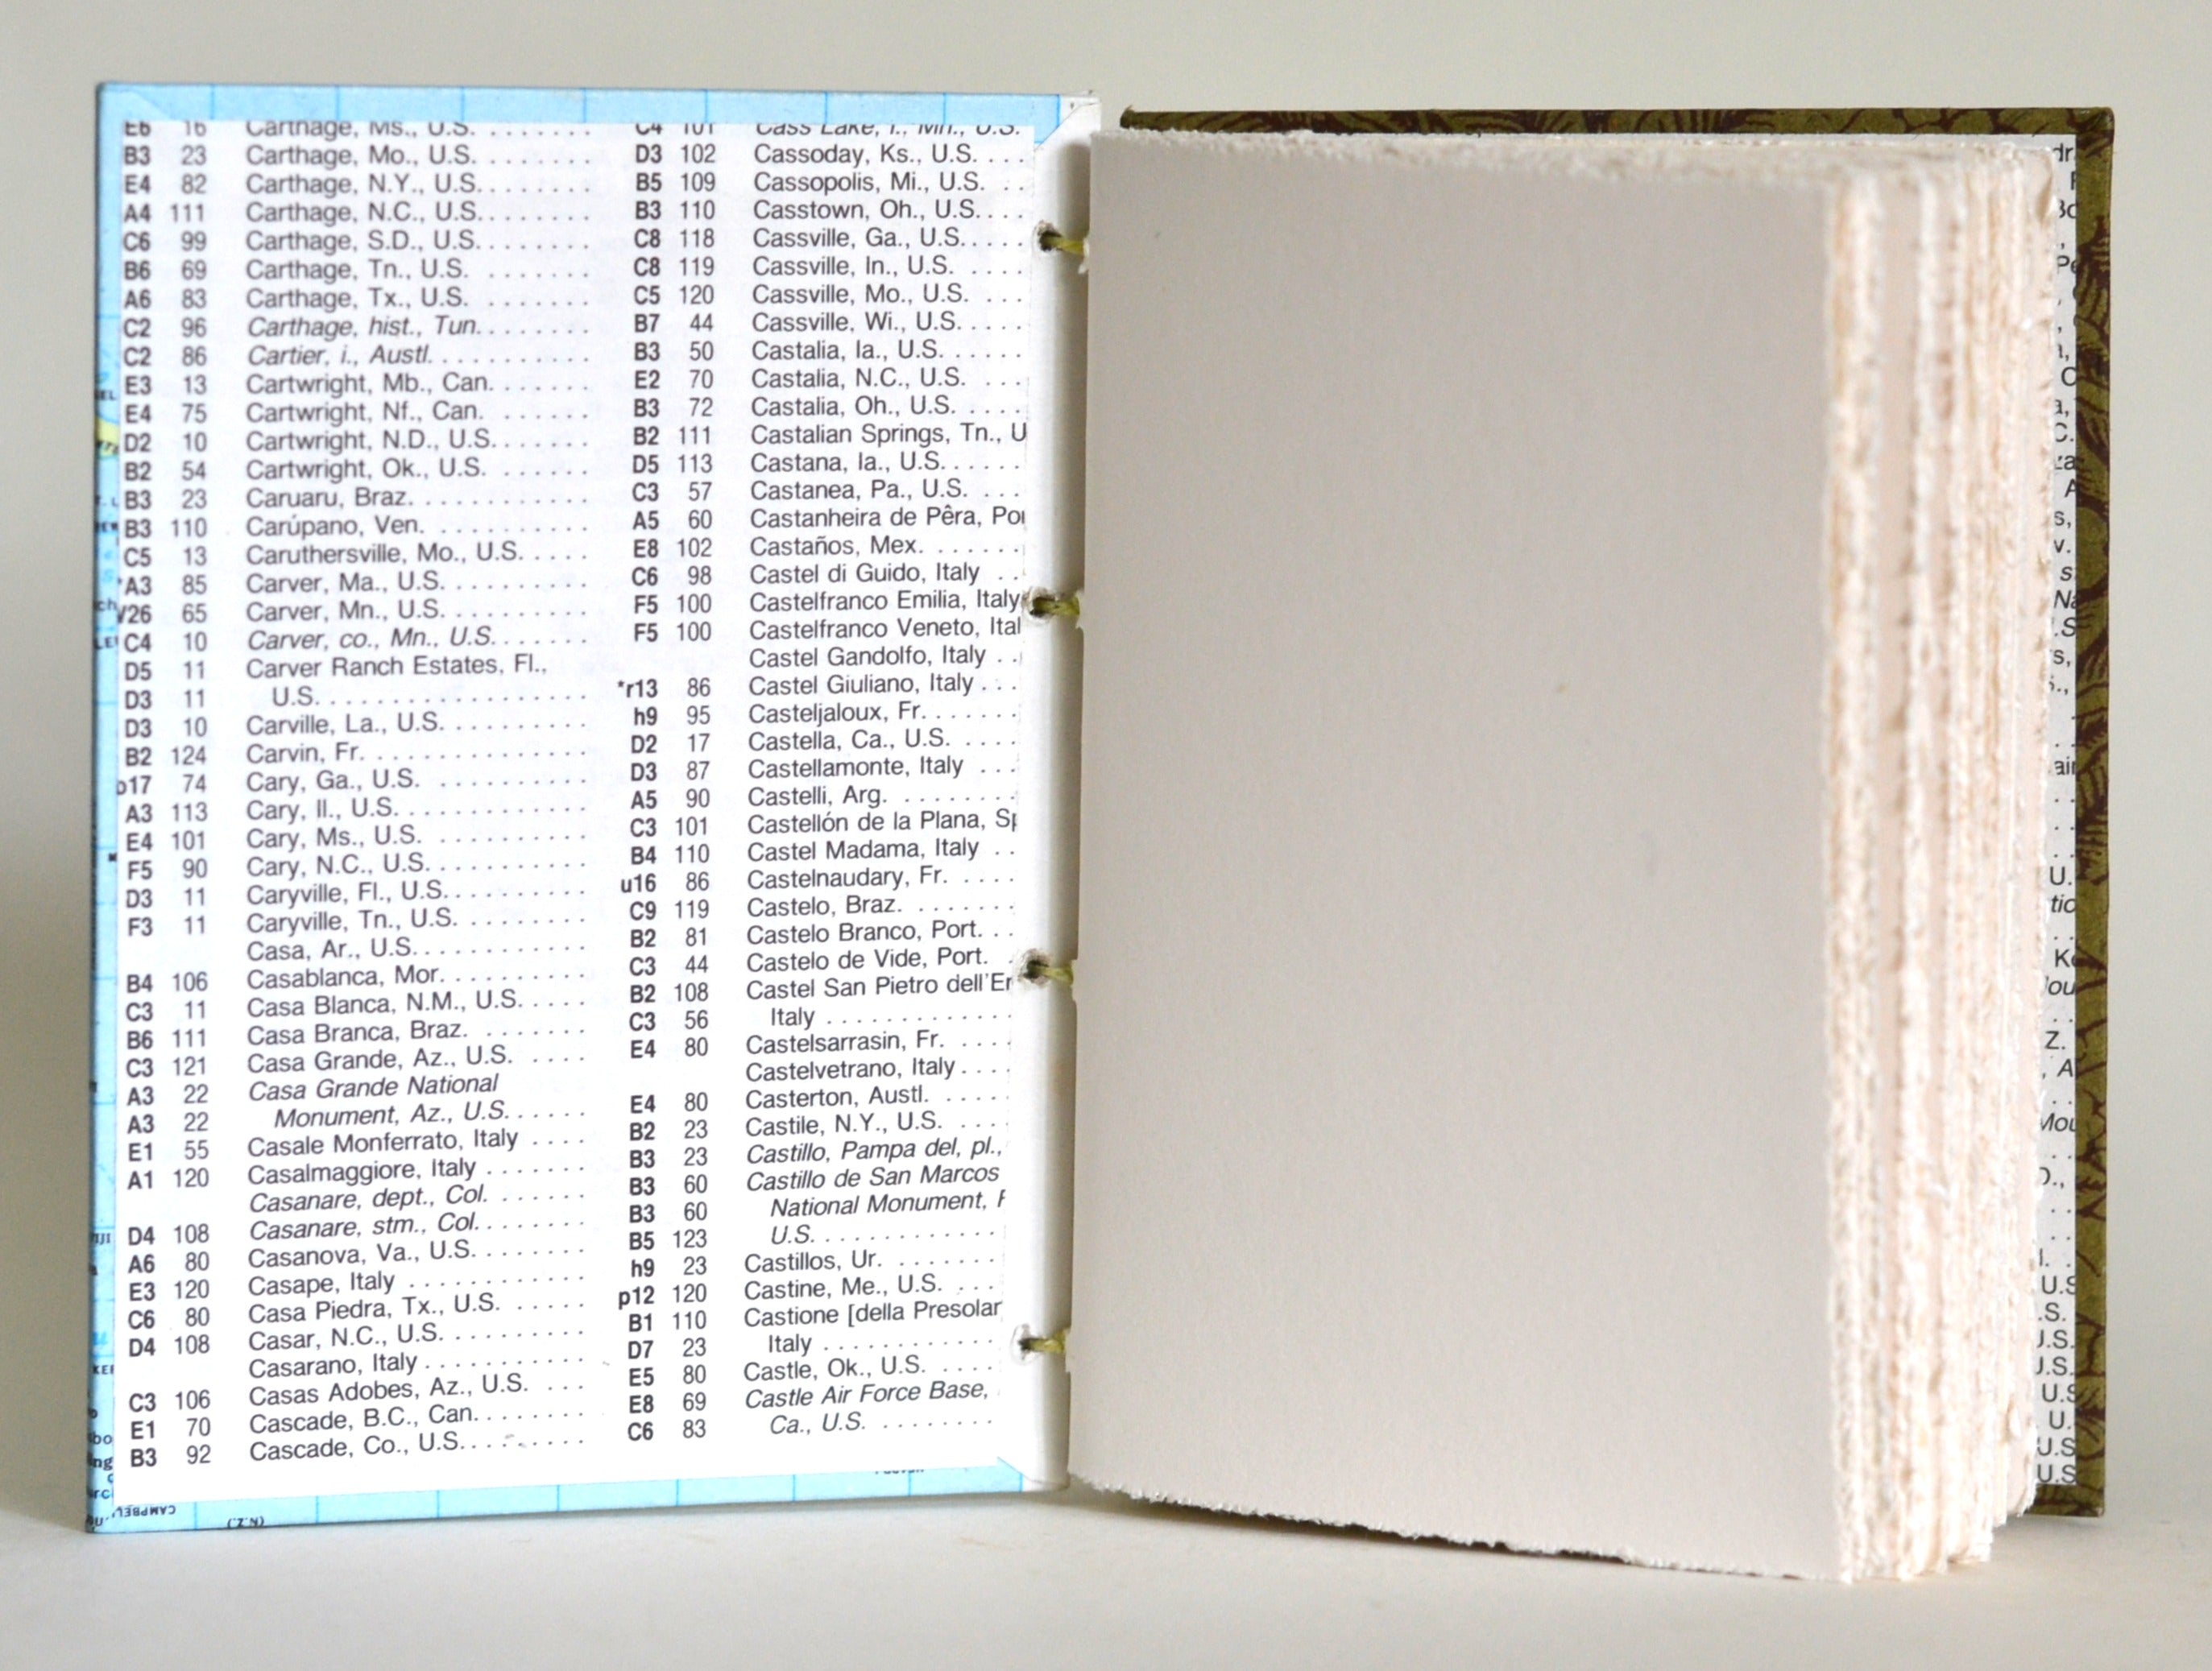 E6 16
B3 23
E4 82
A4 111
C6 99
B6 69
A6 83
C2 96
C2 86
E3 13
E4 75
D2 10
B2 54
B3 23
B3 110
C5 13
*A3 85
26 65
C4 10
D5 11
D3 11
D3 10
B2 124
17 74
A3 113
E4 101
F5 90
D3 11
F3 11
B4 106
C3 11
B6 111
C3 121
A3 22
A3 22
E1 55
A1 120
D4 108
A6 80
E3 120
C6 80
D4 108
C3 106
E1 70
B3 92
Carthage, Ms., U.S. . . . . . . . C4 101
Carthage, Mo., U.S. . . . . . . . D3 102
Carthage, N.Y., U.S. . . . . . . . B5 109
Carthage, N.C., U.S. . . . . . . . B3 110
Carthage, S.D., U.S. . . . . . . . C8 118
Carthage, Tn., U.S. . . . . . . . C8 119
Carthage, Tx., U.S. . . . . . . . C5 120
Carthage, hist., Tun. . . . . . . . B7 44
Cartier, i., Austl. . . . . . . . . . . B3 50
Cartwright, Mb., Can. . . . . . . E2 70
Cartwright, Nf., Can. . . . . . . B3 72
Cartwright, N.D., U.S. . . . . . . B2 111
Cartwright, Ok., U.S. . . . . . . D5 113
Caruaru, Braz. . . . . . . . . . . . C3 57
Carúpano, Ven. . . . . . . . . . . A5 60
Caruthersville, Mo., U.S. . . . . E8 102
Carver, Ma., U.S. . . . . . . . . . C6 98
Carver, Mn., U.S. . . . . . . . . . F5 100
Carver, co., Mn., U.S. . . . . . . F5 100
Carver Ranch Estates, Fl.,
U.S. . . . . . . . . . . . . . . . . *r13 86
Carville, La., U.S. . . . . . . . . . h9 95
Carvin, Fr. . . . . . . . . . . . . . . D2 17
Cary, Ga., U.S. . . . . . . . . . . D3 87
Cary, Il., U.S. . . . . . . . . . . . A5 90
Cary, Ms., U.S. . . . . . . . . . . C3 101
Cary, N.C., U.S. . . . . . . . . . . B4 110
Caryville, Fl., U.S. . . . . . . . . . u16 86
Caryville, Tn., U.S. . . . . . . . . C9 119
Casa, Ar., U.S. . . . . . . . . . . . B2 81
Casablanca, Mor. . . . . . . . . . C3 44
Casa Blanca, N.M., U.S. . . . . B2 108
Casa Branca, Braz. . . . . . . . . C3 56
Casa Grande, Az., U.S. . . . . E4 80
Casa Grande National
Monument, Az., U.S. . . . . . E4 80
Casale Monferrato, Italy . . . . B2 23
Casalmaggiore, Italy . . . . . . . B3 23
Casanare, dept., Col. . . . . . . B3 60
Casanare, stm., Col. . . . . . . . B3 60
Casanova, Va., U.S. . . . . . . . B5 123
Casape, Italy . . . . . . . . . . . . h9 23
Casa Piedra, Tx., U.S. . . . . . p12 120
Casar, N.C., U.S. . . . . . . . . . B1 110
Casarano, Italy . . . . . . . . . . . D7 23
Casas Adobes, Az., U.S. . . . E5 80
Cascade, B.C., Can. . . . . . . . E8 69
Cascade, Co., U.S. . . . . . . . . C6 83
Cass Lake, l., Mn., U.S.
Cassoday, Ks., U.S. . . .
Cassopolis, Mi., U.S. . .
Casstown, Oh., U.S. . . .
Cassville, Ga., U.S. . . . .
Cassville, In., U.S. . . . .
Cassville, Mo., U.S. . . .
Cassville, Wi., U.S. . . . .
Castalia, Ia., U.S. . . . . .
Castalia, N.C., U.S. . . .
Castalia, Oh., U.S. . . . .
Castalian Springs, Tn., U
Castana, Ia., U.S. . . . . .
Castanea, Pa., U.S. . . .
Castanheira de Pêra, Po
Castaños, Mex. . . . . . .
Castel di Guido, Italy . .
Castelfranco Emilia, Italy
Castelfranco Veneto, Ital
Castel Gandolfo, Italy . .
Castel Giuliano, Italy . . .
Casteljaloux, Fr. . . . . . .
Castella, Ca., U.S. . . . .
Castellamonte, Italy . . .
Castelli, Arg. . . . . . . . .
Castellón de la Plana, S
Castel Madama, Italy . .
Castelnaudary, Fr. . . . .
Castelo, Braz. . . . . . . .
Castelo Branco, Port. . .
Castelo de Vide, Port. .
Castel San Pietro dell'E
Italy . . . . . . . . . . . . .
Castelsarrasin, Fr. . . . .
Castelvetrano, Italy . . . .
Casterton, Austl. . . . . .
Castile, N.Y., U.S. . . . .
Castillo, Pampa del, pl.,
Castillo de San Marcos
National Monument, F
U.S. . . . . . . . . . . . . .
Castillos, Ur. . . . . . . . .
Castine, Me., U.S. . . . .
Castione [della Presolar
Italy . . . . . . . . . . . .
Castle, Ok., U.S. . . . .
Castle Air Force Base,
Ca., U.S. . . . . . . . .
CAMPBEL
(N.Z.)